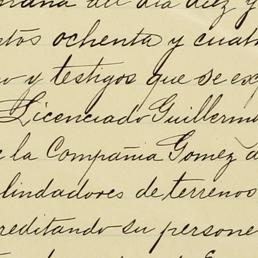 mana del día diez y
ntos ochenta y cuatr
o y testigos que se exp
Licenciado Guillerm
e la Compañia Gomez d
lindadores de terrenos
reditando su persone